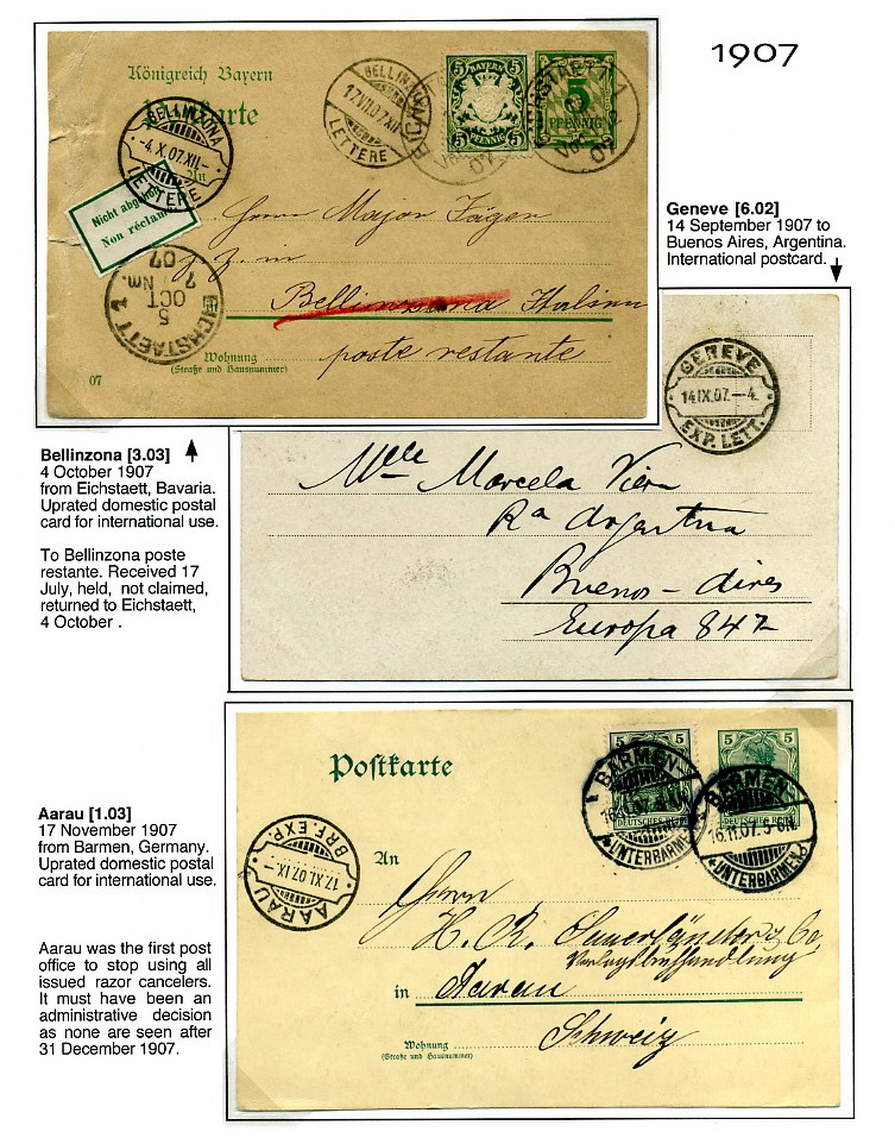 1907
Königreich Bayern
Postkarte
BELLINZONA
17.VII.07.XII
LETTERE
BAYERN
5 5
5 5
PFENNIG
5
PFENNIG
EICHSTAETT 1
07
BELLINZONA
-4.X.07.XII-
LETTERE
An
Nicht abgeholt
Non réclamé
Herrn Major Jäger
in
Bellinzona Italien
poste restante
EICHSTAETT 1
5
OCT
7 Nm.
07
Wohnung
(Straße und Hausnummer)
07
Geneve [6.02]
14 September 1907 to
Buenos Aires, Argentina.
International postcard.
GENEVE
14.IX.07.—4.
EXP. LETT.
Mlle Marcela Viera
Ra Argentina
Buenos-Aires
Europa 847
Bellinzona [3.03]
4 October 1907
from Eichstaett, Bavaria.
Uprated domestic postal
card for international use.
To Bellinzona poste
restante. Received 17
July, held, not claimed,
returned to Eichstaett,
4 October .
Postkarte
5 5
DEUTSCHES REICH
5 5
DEUTSCHES REICH
BARMEN-
16.11.07.5-6N.
*UNTERBARMEN
BARMEN-
16.11.07.5-6N.
*UNTERBARMEN
AARAU
17.XI.07.IX-
BRF. EXP.
An
Herrn
H. R. Sauerländer & Co,
Verlagsbuchhandlung
in Aarau
Schweiz
Wohnung
(Straße und Hausnummer)
Aarau [1.03]
17 November 1907
from Barmen, Germany.
Uprated domestic postal
card for international use.
Aarau was the first post
office to stop using all
issued razor cancelers.
It must have been an
administrative decision
as none are seen after
31 December 1907.